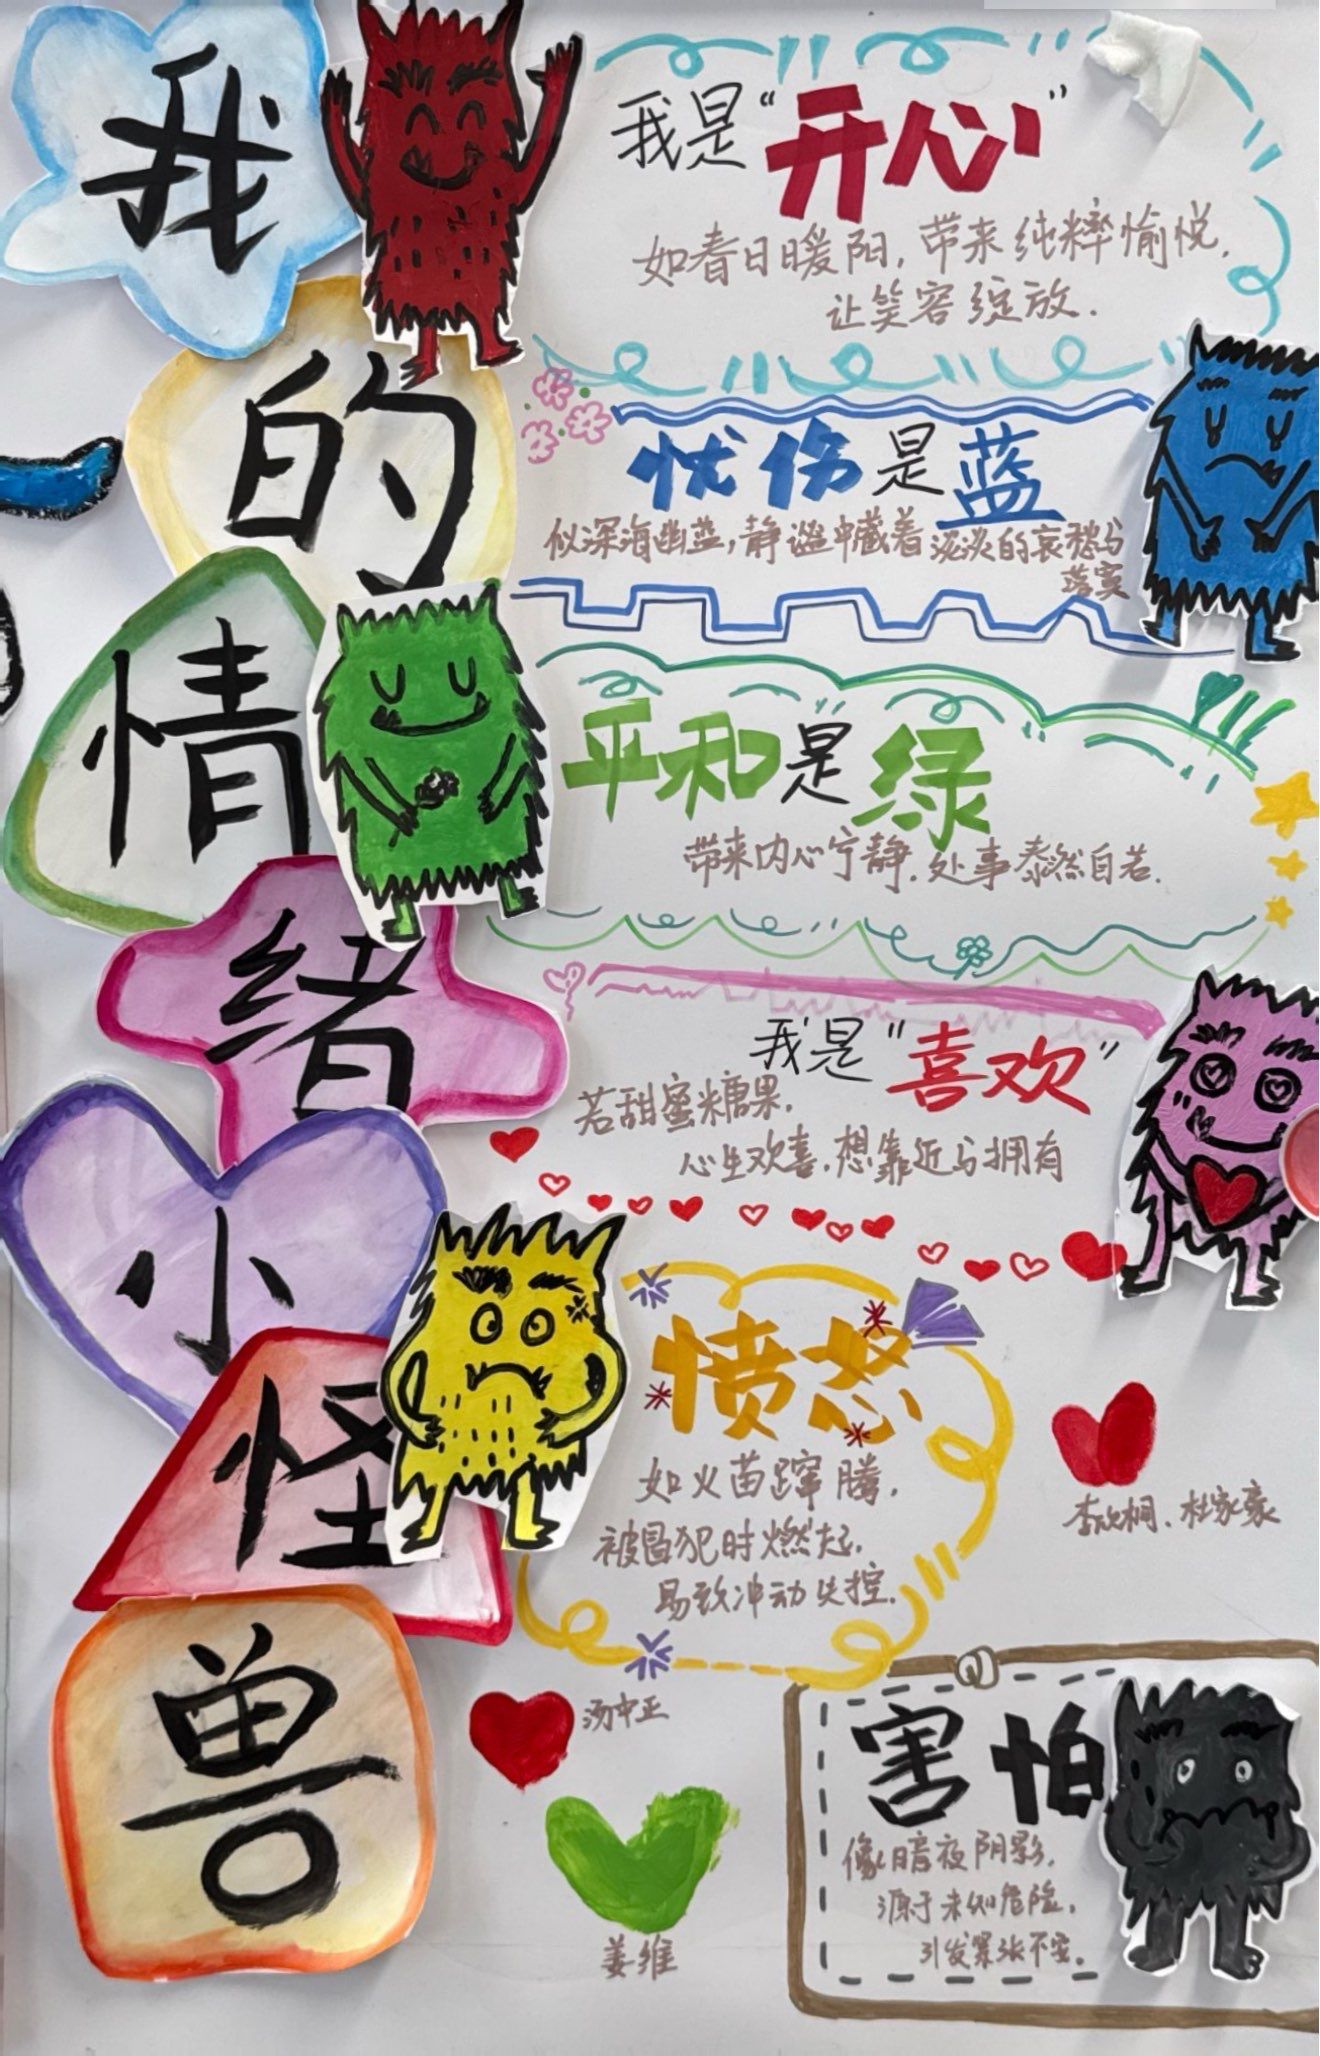 我的情绪小怪兽
我是“开心”
如春日暖阳，带来纯粹愉悦，
让笑容绽放.
忧伤是蓝
似深海幽蓝，静谧中藏着淡淡的哀愁与
落寞
平和是绿
带来内心宁静，处事泰然自若.
我是“喜欢”
若甜蜜糖果，
心生欢喜，想靠近与拥有
愤怒
如火苗蹿腾，
被冒犯时燃起，
易致冲动失控.
李欣桐、杜家豪
汤中正
姜维
害怕
像暗夜阴影，
源于未知危险，
引发紧张不安。